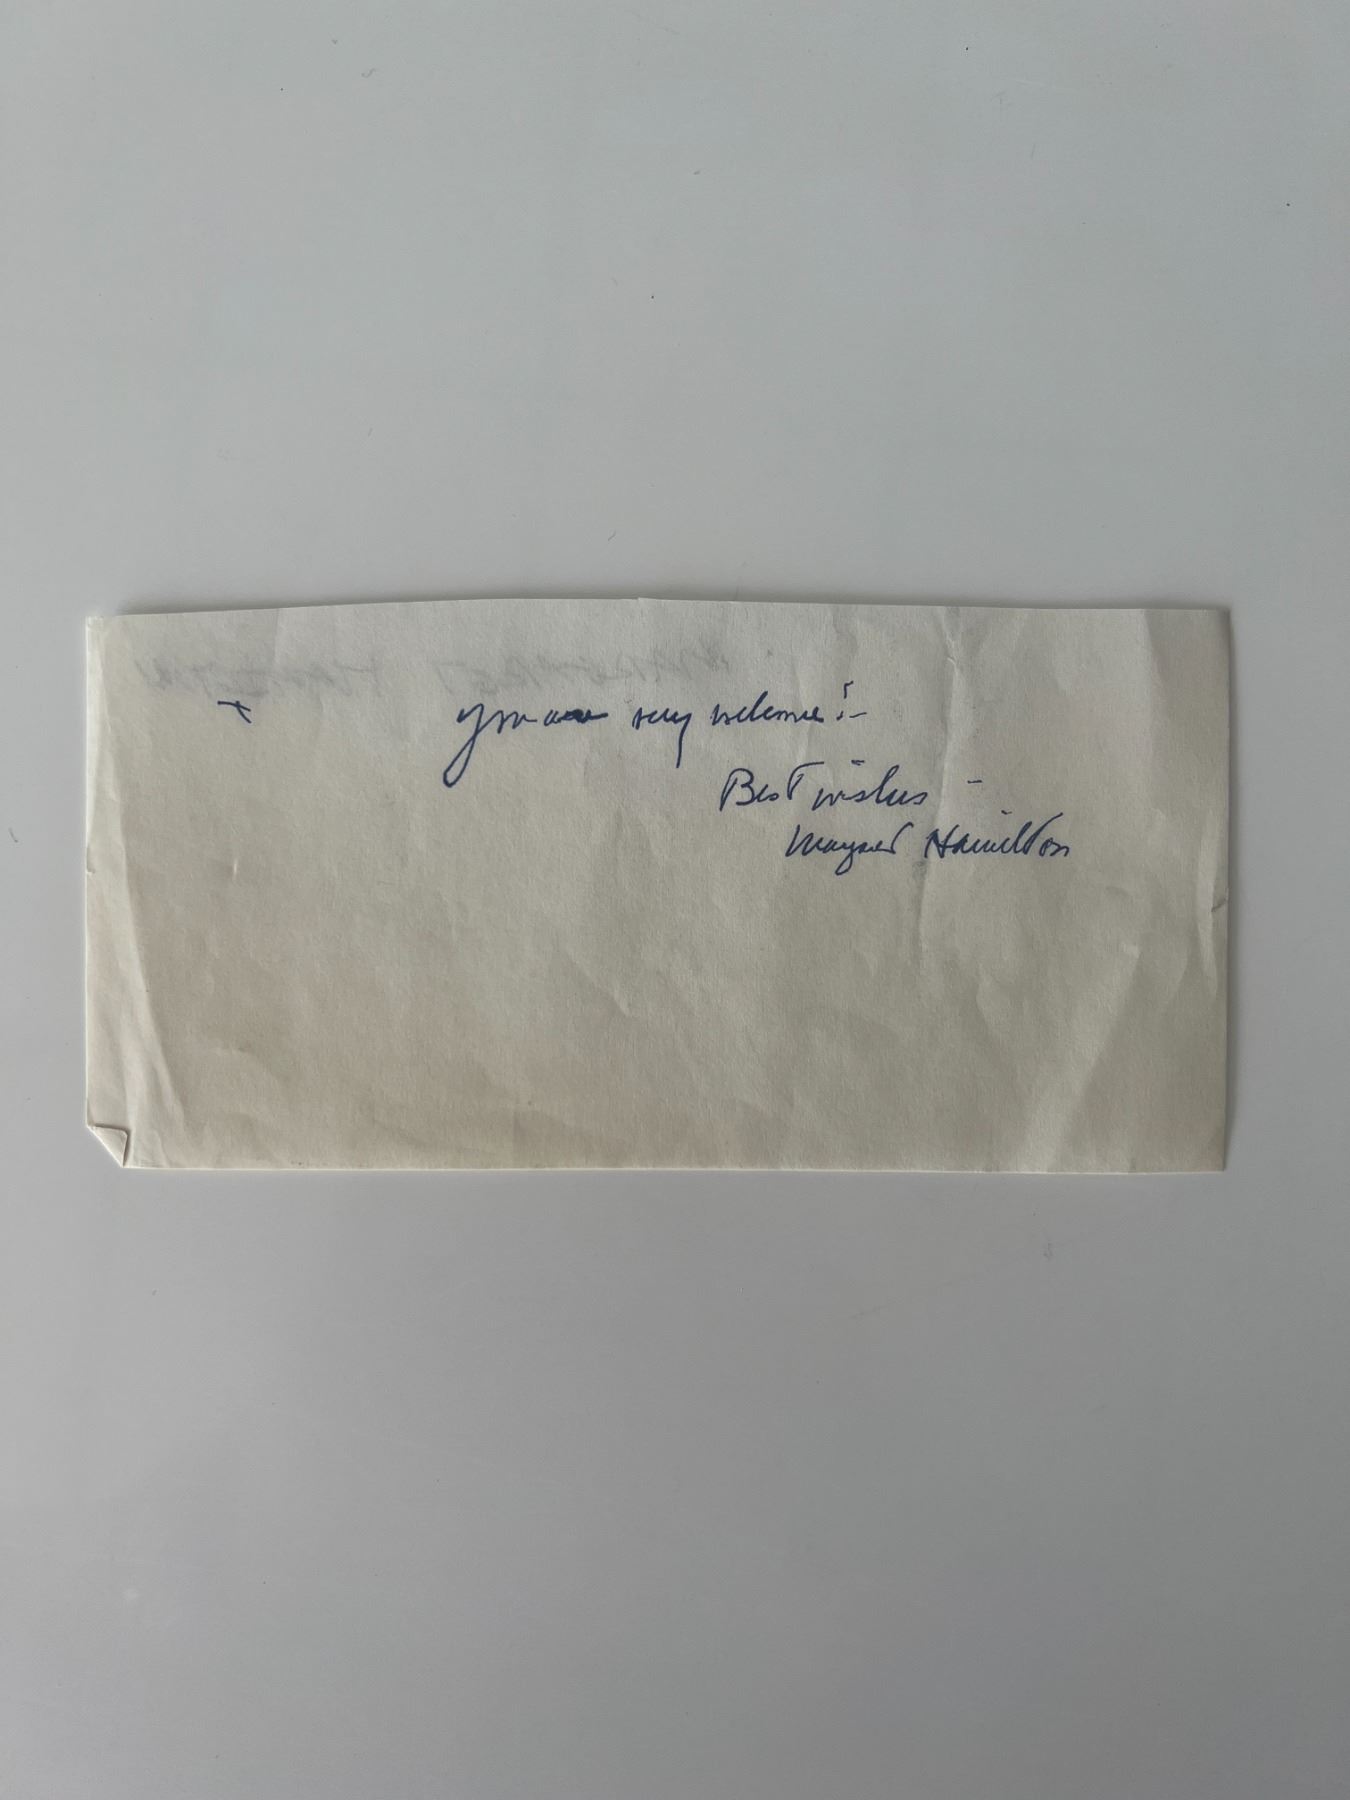 You are very welcome!-
Best wishes -
Hamilton